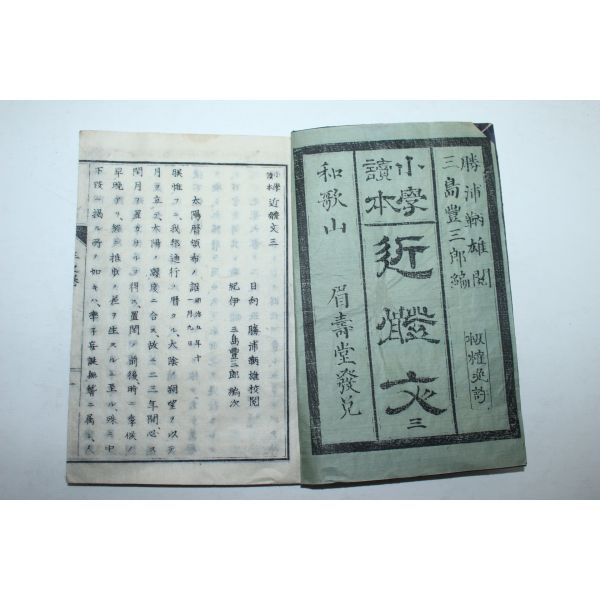 勝浦鞆雄閲
三島豐三郎編
版權免許
小學
讀本
近體文
三
和歌山
眉壽堂發兌
小學
讀本
近體文三
日向 勝浦鞆雄校閲
紀伊 三島豐三郎編次
太陽暦頒布ノ詔 明治五年十
一月九日
朕惟フニ我邦通行ノ暦タル太陰ノ朔望ヲ以テ
月ヲ立テ太陽ノ躔度ニ合ス故ニ二三年間必ス
閏月ヲ置カサルヲ得ス置閏ノ前後時ニ季候ノ
早晩アリ終ニ推歩ノ差ヲ生スルニ至ル殊ニ中
下段ニ掲ル所ノ如キハ率子妄誕無稽ニ屬シ人